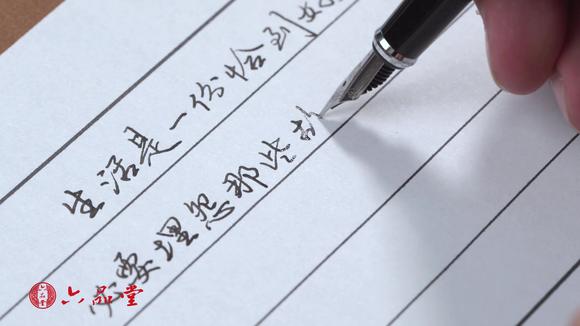 生活是一份恰到好
不要埋怨那些
六品堂